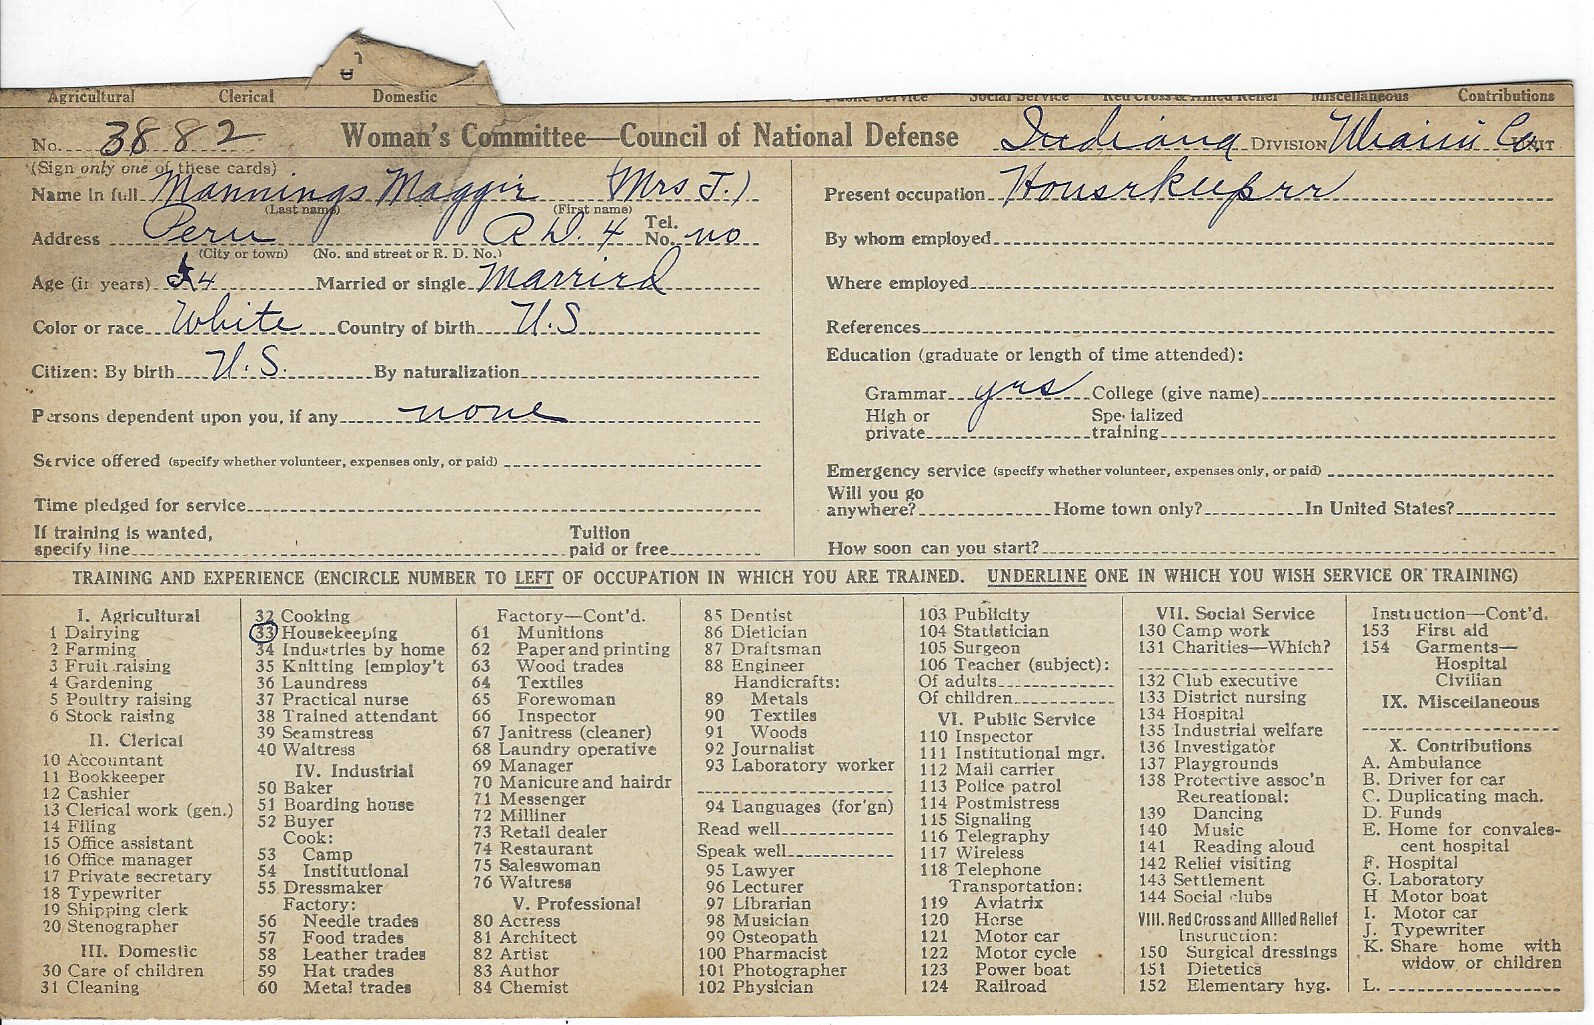 Agricultural Clerical Domestic Public Service Social Service Red Cross & Allied Relief Miscellaneous Contributions
No. 3882 Woman's Committee—Council of National Defense Indiana DIVISION Miami Co. UNIT
(Sign only one of these cards)
Name in full Mannings Maggie (Mrs J.)
(Last name) (First name)
Address Peru R D. 4 Tel. No. no
(City or town) (No. and street or R. D. No.)
Age (in years) 54 Married or single Married
Color or race White Country of birth U.S
Citizen: By birth U.S. By naturalization
Persons dependent upon you, if any none
Service offered (specify whether volunteer, expenses only, or paid)
Time pledged for service
If training is wanted, specify line Tuition paid or free
Present occupation Housekeeper
By whom employed
Where employed
References
Education (graduate or length of time attended):
Grammar yes College (give name)
High or private Specialized training
Emergency service (specify whether volunteer, expenses only, or paid)
Will you go anywhere? Home town only? In United States?
How soon can you start?
TRAINING AND EXPERIENCE (ENCIRCLE NUMBER TO LEFT OF OCCUPATION IN WHICH YOU ARE TRAINED. UNDERLINE ONE IN WHICH YOU WISH SERVICE OR TRAINING)
I. Agricultural
1 Dairying
2 Farming
3 Fruit raising
4 Gardening
5 Poultry raising
6 Stock raising
II. Clerical
10 Accountant
11 Bookkeeper
12 Cashier
13 Clerical work (gen.)
14 Filing
15 Office assistant
16 Office manager
17 Private secretary
18 Typewriter
19 Shipping clerk
20 Stenographer
III. Domestic
30 Care of children
31 Cleaning
32 Cooking
33 Housekeeping
34 Industries by home
35 Knitting [employ't
36 Laundress
37 Practical nurse
38 Trained attendant
39 Seamstress
40 Waitress
IV. Industrial
50 Baker
51 Boarding house
52 Buyer
Cook:
53 Camp
54 Institutional
55 Dressmaker
Factory:
56 Needle trades
57 Food trades
58 Leather trades
59 Hat trades
60 Metal trades
Factory—Cont'd.
61 Munitions
62 Paper and printing
63 Wood trades
64 Textiles
65 Forewoman
66 Inspector
67 Janitress (cleaner)
68 Laundry operative
69 Manager
70 Manicure and hairdr
71 Messenger
72 Milliner
73 Retail dealer
74 Restaurant
75 Saleswoman
76 Waitress
V. Professional
80 Actress
81 Architect
82 Artist
83 Author
84 Chemist
85 Dentist
86 Dietician
87 Draftsman
88 Engineer
Handicrafts:
89 Metals
90 Textiles
91 Woods
92 Journalist
93 Laboratory worker
94 Languages (for'gn)
Read well
Speak well
95 Lawyer
96 Lecturer
97 Librarian
98 Musician
99 Osteopath
100 Pharmacist
101 Photographer
102 Physician
103 Publicity
104 Statistician
105 Surgeon
106 Teacher (subject):
Of adults
Of children
VI. Public Service
110 Inspector
111 Institutional mgr.
112 Mail carrier
113 Police patrol
114 Postmistress
115 Signaling
116 Telegraphy
117 Wireless
118 Telephone
Transportation:
119 Aviatrix
120 Horse
121 Motor car
122 Motor cycle
123 Power boat
124 Railroad
VII. Social Service
130 Camp work
131 Charities—Which?
132 Club executive
133 District nursing
134 Hospital
135 Industrial welfare
136 Investigator
137 Playgrounds
138 Protective assoc'n
Recreational:
139 Dancing
140 Music
141 Reading aloud
142 Relief visiting
143 Settlement
144 Social clubs
VIII. Red Cross and Allied Relief
Instruction:
150 Surgical dressings
151 Dietetics
152 Elementary hyg.
Instruction—Cont'd.
153 First aid
154 Garments—
Hospital
Civilian
IX. Miscellaneous
X. Contributions
A. Ambulance
B. Driver for car
C. Duplicating mach.
D. Funds
E. Home for convales-
cent hospital
F. Hospital
G. Laboratory
H Motor boat
I. Motor car
J. Typewriter
K. Share home with
widow or children
L.